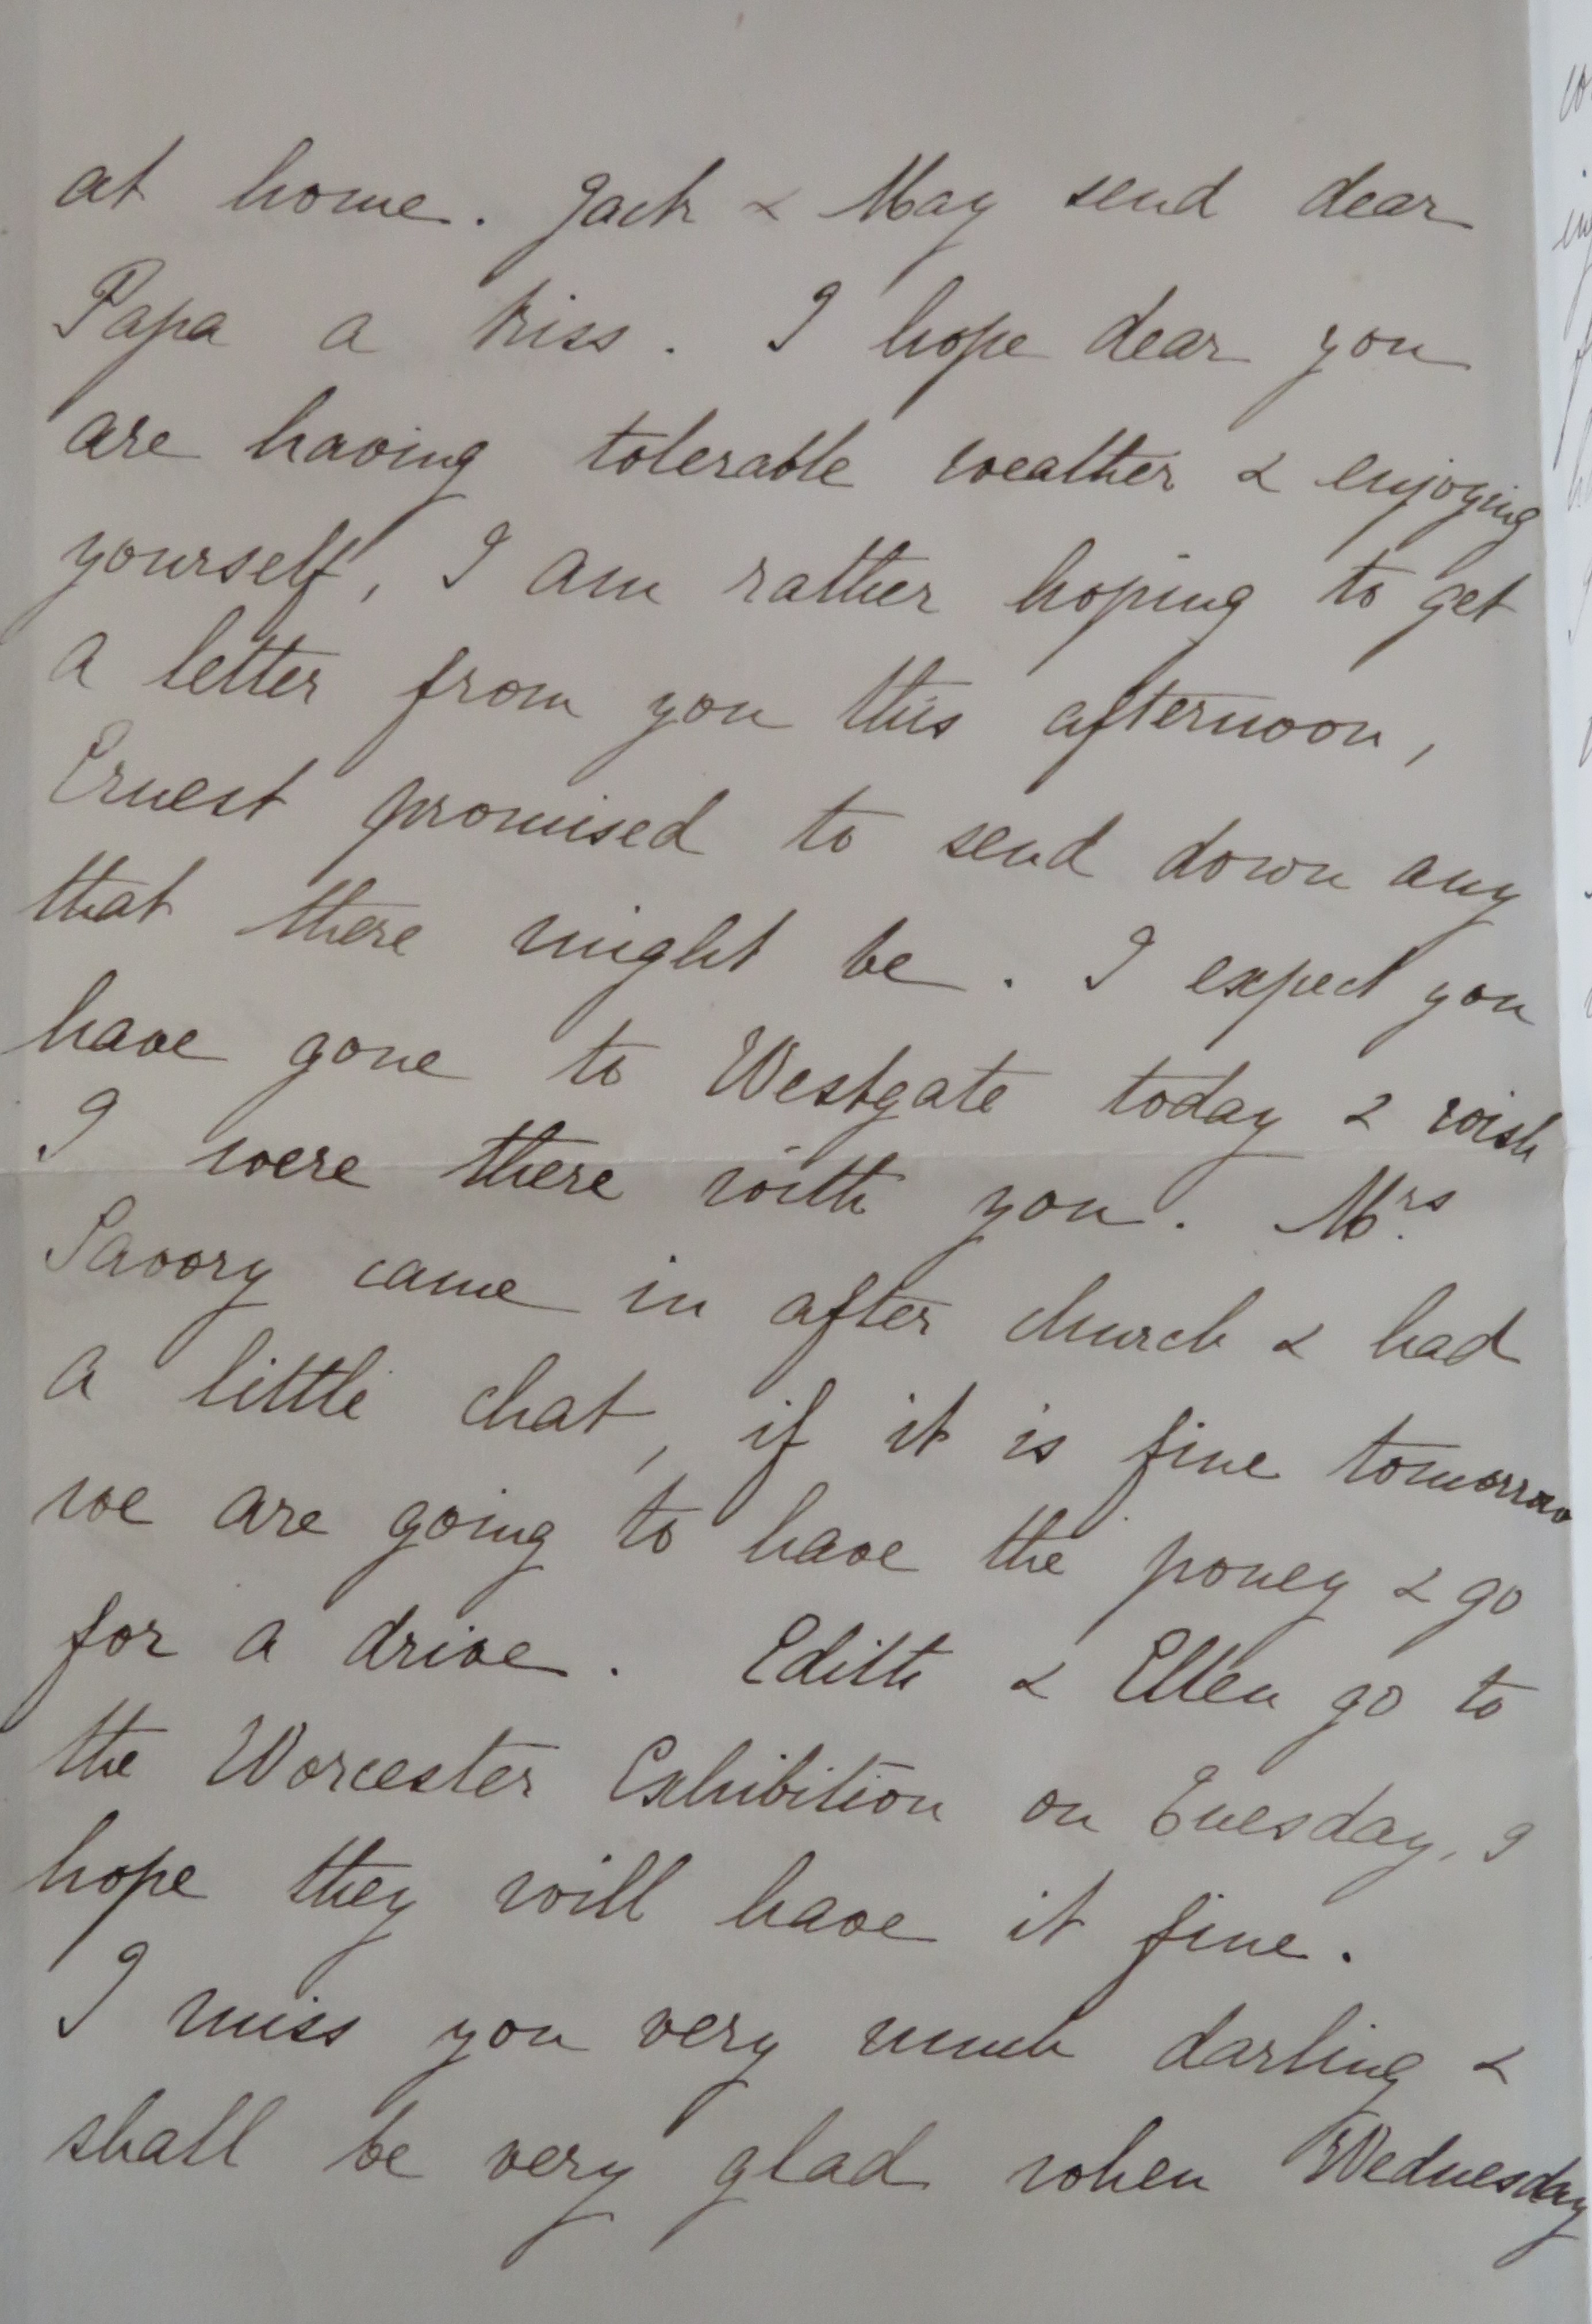 at home. Jack & May send dear
Papa a kiss. I hope dear you
are having tolerable weather & enjoying
yourself, I am rather hoping to get
a letter from you this afternoon,
Ernest promised to send down any
that there might be. I expect you
have gone to Westgate today & wish
I were there with you. Mrs.
Savory came in after church & had
a little chat, if it is fine tomorrow
we are going to have the poney & go
for a drive. Edith & Ellen go to
the Worcester Exhibition on Tuesday, I
hope they will have it fine.
I miss you very much darling &
shall be very glad when Wednesday